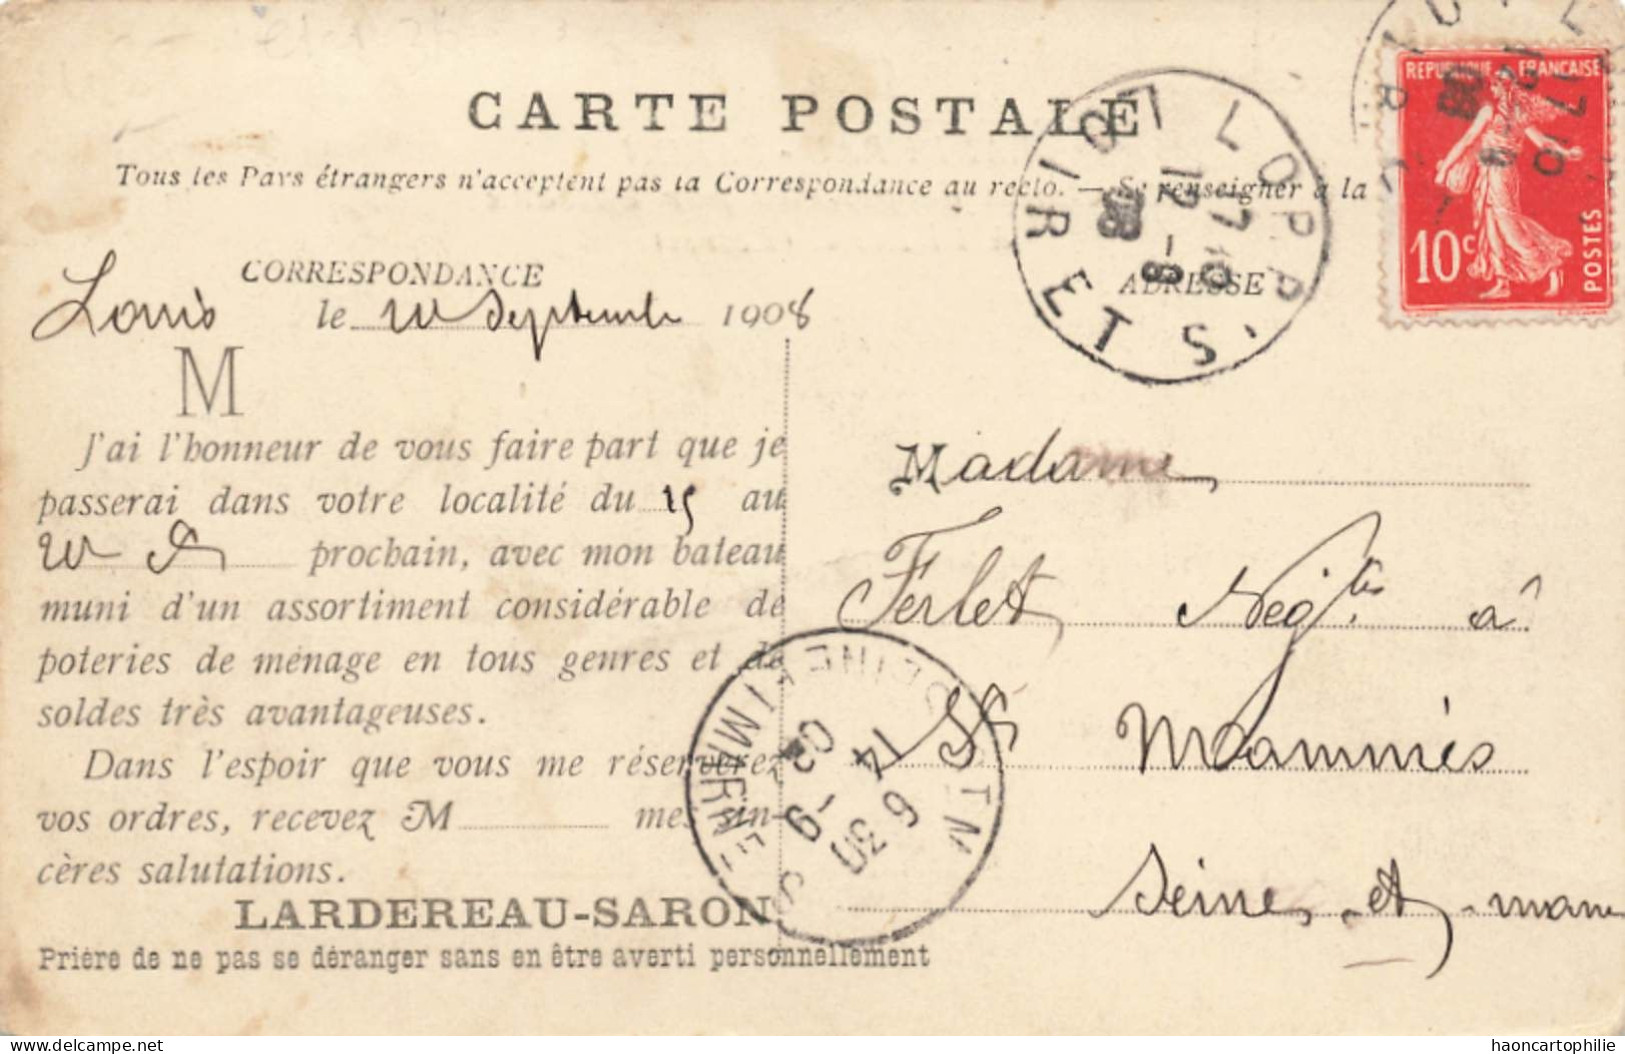 CARTE POSTALE
Tous les Pays étrangers n'acceptent pas la Correspondance au recto. — Se renseigner à la
REPUBLIQUE FRANÇAISE
10c POSTES
CORRESPONDANCE
ADRESSE
le Septembre 1908
M
J'ai l'honneur de vous faire part que je
passerai dans votre localité du 15 au
prochain, avec mon bateau
muni d'un assortiment considérable de
poteries de ménage en tous genres et de
soldes très avantageuses.
Dans l'espoir que vous me réserverez
vos ordres, recevez M mes sin-
cères salutations.
LARDEREAU-SARON
Prière de ne pas se déranger sans en être averti personnellement
Madame
Ferlet Négts à
St Mammès
Seine et marne
17 10
12 - 9
08
LOIR ET
6 30
14 - 9
SEINE ET MARNE
delcampe.net
haoncartophilie